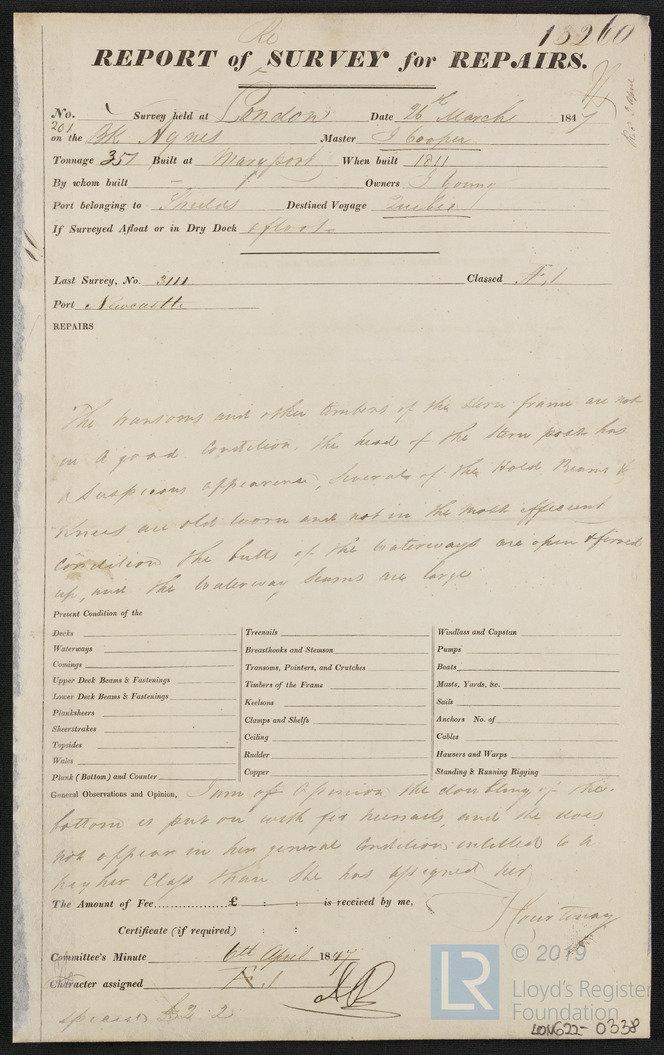 13260
Re
REPORT of SURVEY for REPAIRS.
No. Survey held at London Date 26th March 1847
201
on the Bk Agnes Master J Cooper
Tonnage 351 Built at Maryport When built 1811
By whom built — Owners J Young
Port belonging to Shields Destined Voyage Quebec
If Surveyed Afloat or in Dry Dock afloat
Last Survey, No. 3111 Classed Æ 1
Port Newcastle
REPAIRS
The transoms and other timbers of the stern frame are not
in a good condition, the head of the stern post has
a suspicious appearance, Several of the Hold Beams &
Knees are old worn and not in the most efficient
condition the butts of the waterways are open &
up, and the waterway seams are large
Present Condition of the
Decks
Waterways
Comings
Upper Deck Beams & Fastenings
Lower Deck Beams & Fastenings
Planksheers
Sheerstrakes
Topsides
Wales
Plank (Bottom) and Counter
Treenails
Breasthooks and Stemson
Transoms, Pointers, and Crutches
Timbers of the Frame
Keelsons
Clamps and Shelfs
Ceiling
Rudder
Copper
Windlass and Capstan
Pumps
Boats
Masts, Yards, &c.
Sails
Anchors No. of
Cables
Hawsers and Warps
Standing & Running Rigging
General Observations and Opinion, I am of opinion the doubling of the
bottom is put on with few treenails, and she does
not appear in her general condition intitled to a
higher class than she has assigned her
The Amount of Fee............... £ : : is received by me,
Certificate (if required) : : J Courtenay
Committee's Minute 6th April 1847
Character assigned Æ 1
£2.2
© 2019
LR
Lloyd's Register
Foundation
LON622-0338